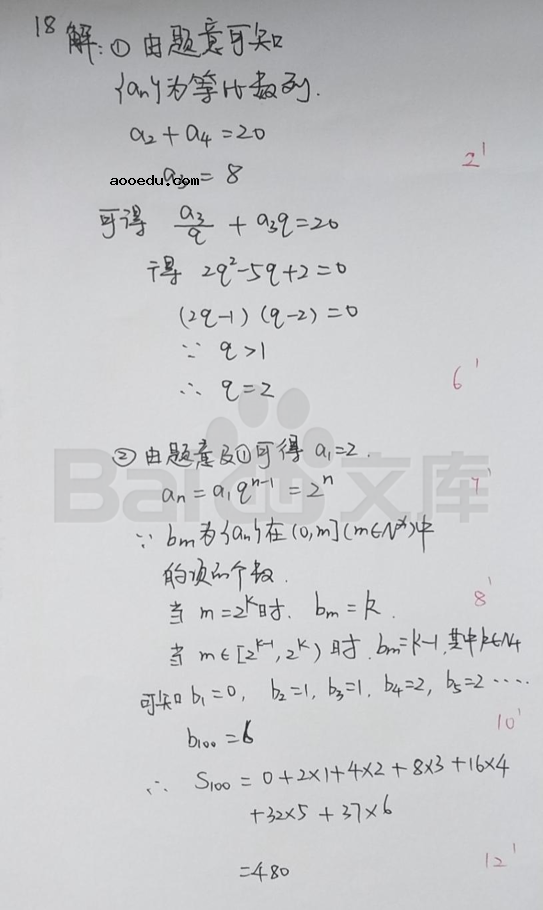 18 解:① 由题意可知
{an}为等比数列.
a₂+a₄=20
aooedu.com a₃=8 2'
可得 a₃/q + a₃q=20
得 2q²-5q+2=0
(2q-1)(q-2)=0
∵ q>1
∴ q=2 6'
②由题意及①可得 a₁=2.
an=a₁qⁿ⁻¹=2ⁿ 7'
Bai 文库
∵ bm为{an}在(0,m](m∈N*)中
的项的个数.
当 m=2ᵏ时. bm=k. 8'
当 m∈[2ᵏ⁻¹,2ᵏ)时.bm=k-1,其中k∈N+
可知b₁=0, b₂=1, b₃=1, b₄=2, b₅=2 ‥‥
b₁₀₀=6 10'
∴ S₁₀₀=0+2×1+4×2+8×3+16×4
+32×5+37×6
=480 12'